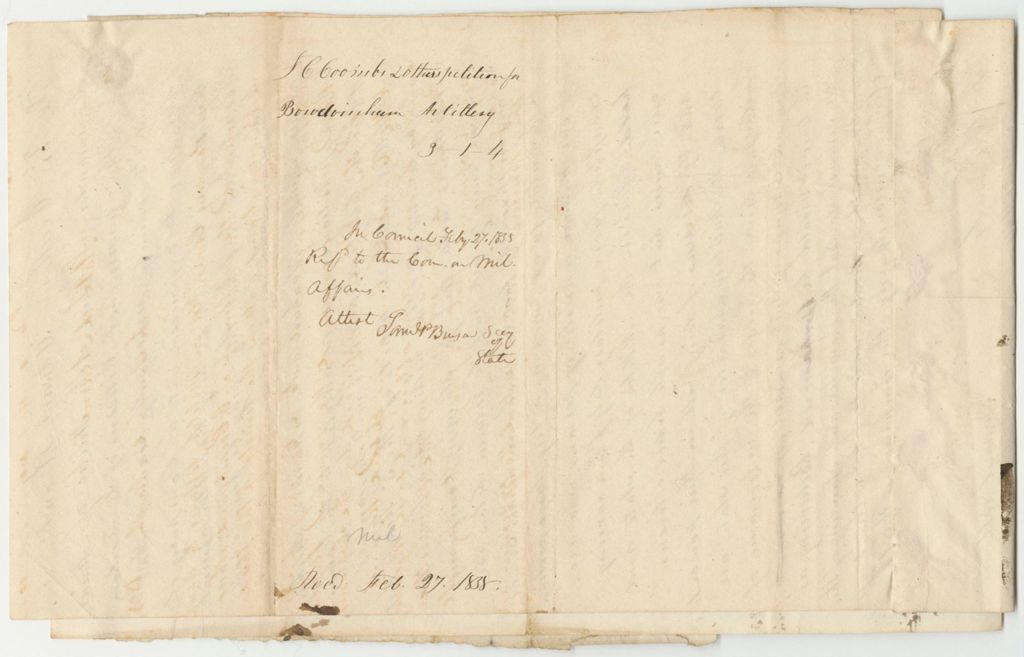 J C Coombs & others petition for
Bowdoinham Artillery
3-1-4
In Council Feby 27. 1838
Refd to the Com. on Mil.
Affairs.
Attest Saml P Benson Secy
of
State
Mil
Recd. Feb. 27. 1838.